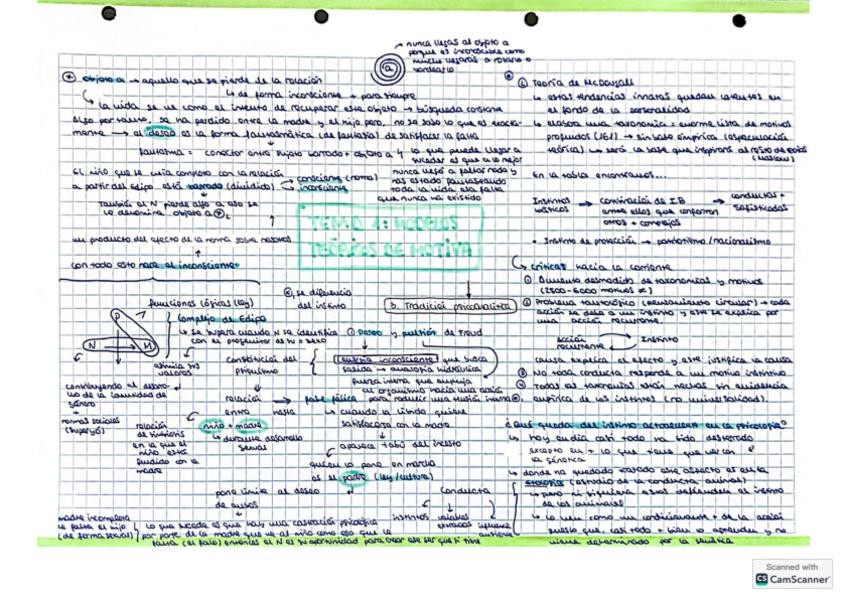 nunca llegas al objeto a
porque es inconocible como
a
objeto a → aquello que se pierde de la relación
↳ de forma inconsciente + para siempre
↳ la vida se ve como el intento de recuperar este objeto → búsqueda constante
Algo por tanto, se ha perdido entre la madre y el hijo pero, no se sabe lo que es exacta-
mente → el deseo es la forma fantasmática (de fantasía) de satisfacer la falta
fantasma = conector entre sujeto barrado + objeto a
lo que puede llegar a
suceder es que a lo mejor
nunca llegó a faltar nada y
has estado fantaseando
toda la vida esa falta
que nunca ha existido
El niño que se cuía con la relación
consciente (norma)
a partir del Edipo está barrado (dividido)
inconsciente
también el N pierde algo a eso se
le denomina objeto a
un producto del efecto de la norma sobre nosotros
con todo esto nace el inconsciente
TEMA 1: MODELOS
TEÓRICOS DE MOTIVA
Teoría de McDougall
↳ estas tendencias innatas quedan latentes en
el fondo de la personalidad
↳ elabora una taxonomía = enorme lista de motivos
profundos → sin base empírica (especulación
teórica) ↳ será la base que inspirará al resto de
(Maslow)
En la tabla encontramos...
Instintos básicos → combinación de I.B entre ellos que conforman otros + complejos → conductas + sofisticadas
• Instinto de protección → patriotismo/nacionalismo
↳ críticas hacia la corriente
① Aumento desmedido de taxonomías y motivos
(2500-6000 motivos ≠)
② Problema tautológico (pensamiento circular) → toda
acción se debe a un instinto y este se explica por
una acción recurrente.
Acción recurrente Instinto
causa explica el efecto y este justifica la causa
③ No toda conducta responde a un motivo instintivo
④ Todas las taxonomías están hechas sin evidencia
empírica de los instintos (no universalidad).
¿Qué queda del instinto actualmente en la psicología?
↳ hoy en día casi todo ha sido desterrado
excepto en + lo que tenga que ver con
la genética
↳ donde ha quedado este aspecto es en la
etología (estudio de la conducta animal)
↳ pero ni siquiera estos defienden el instinto
de los animales
↳ lo ven como un condicionante + de la acción
puesto que casi todo + bien lo aprenden y no
viene determinado por la genética
3. Tradición psicoanalítica
se diferencia
del instinto
① Deseo y pulsión de Freud
(energía inconsciente) que busca
salida → analogía hidráulica
fuerza interna que empuja
al organismo hacia una acción
para reducir una tensión interna
funciones lógicas (ley)
P
N
M
Complejo de Edipo
↳ se supera cuando N se identifica
con el progenitor de su = sexo
asimila sus
valores
contribuyendo al desarro-
llo de la identidad de
género
+
normas sociales
(superyó)
constitución del
psiquismo
relación → fase fálica
entre hasta
niño + madre
↳ durante desarrollo
sexual
relación
de simbiosis
en la que el
niño está
fundido con la
madre
↳ cuando la libido quiere
satisfacerse con la madre
aparece tabú del incesto
quien lo pone en marcha
es el padre (ley/cultura)
pone límite al deseo
de ambos
conducta
instintos variables
madre incompleta
le falta el hijo
(de forma sexual)
lo que sucede es que hay una castración psicológica
por parte de la madre que ve al niño como eso que le
falta (el falo) entonces el N es su oportunidad para
Scanned with
CS CamScanner